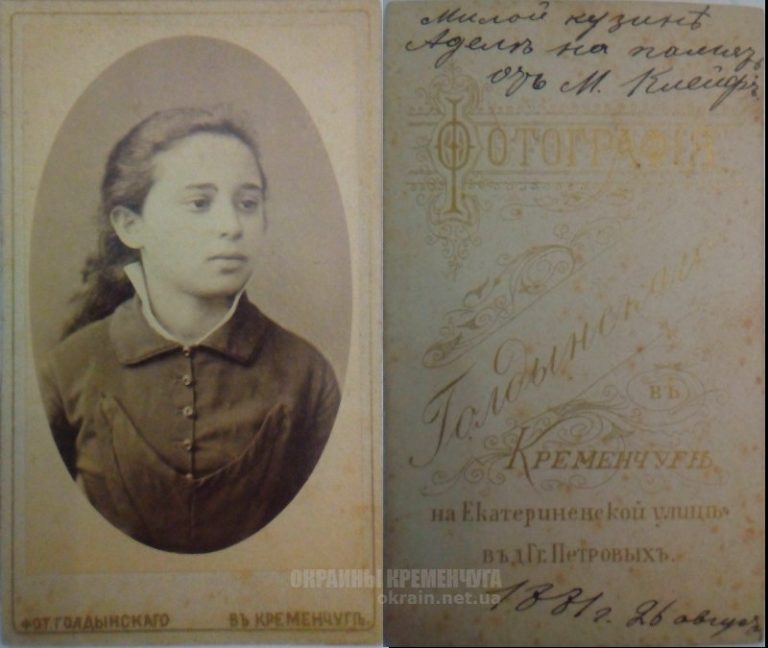 ФОТ. ГОЛДЫНСКАГО ВЪ КРЕМЕНЧУГѢ.
Милой кузинѣ
Аделѣ на память
отъ М. Клейфъ
ФОТОГРАФІЯ
Голдынскаго
ВЪ
КРЕМЕНЧУГѢ
на Екатериненской улицѣ
въ д Гг. Петровыхъ.
1881 г. 26 август
ОКРАИНЫ КРЕМЕНЧУГА
okrain.net.ua